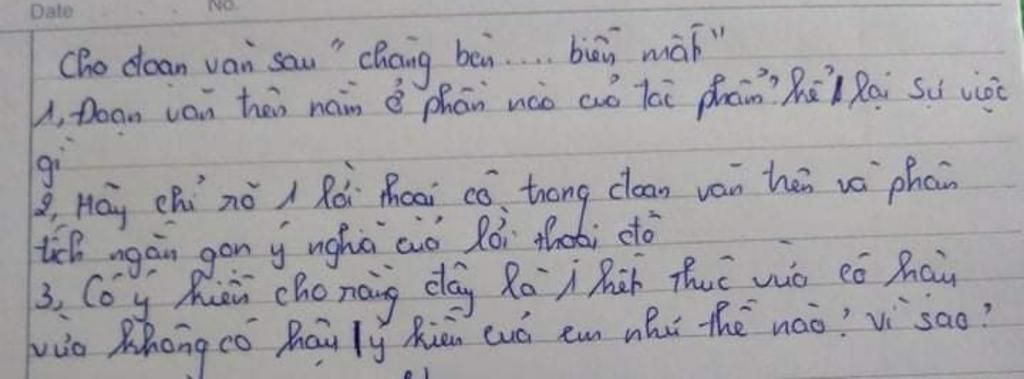 Date No.
Cho đoạn văn sau "chàng bèn.... biến mất"
1, Đoạn văn trên nằm ở phần nào của tác phẩm? kể lại sự việc
gì
2, Hãy chỉ rõ 1 lời thoại có trong đoạn văn trên và phân
tích ngắn gọn ý nghĩa của lời thoại đó
3, Có ý kiến cho rằng đây là 1 kết thúc vừa có hậu
vừa không có hậu / ý kiến của em như thế nào? vì sao?